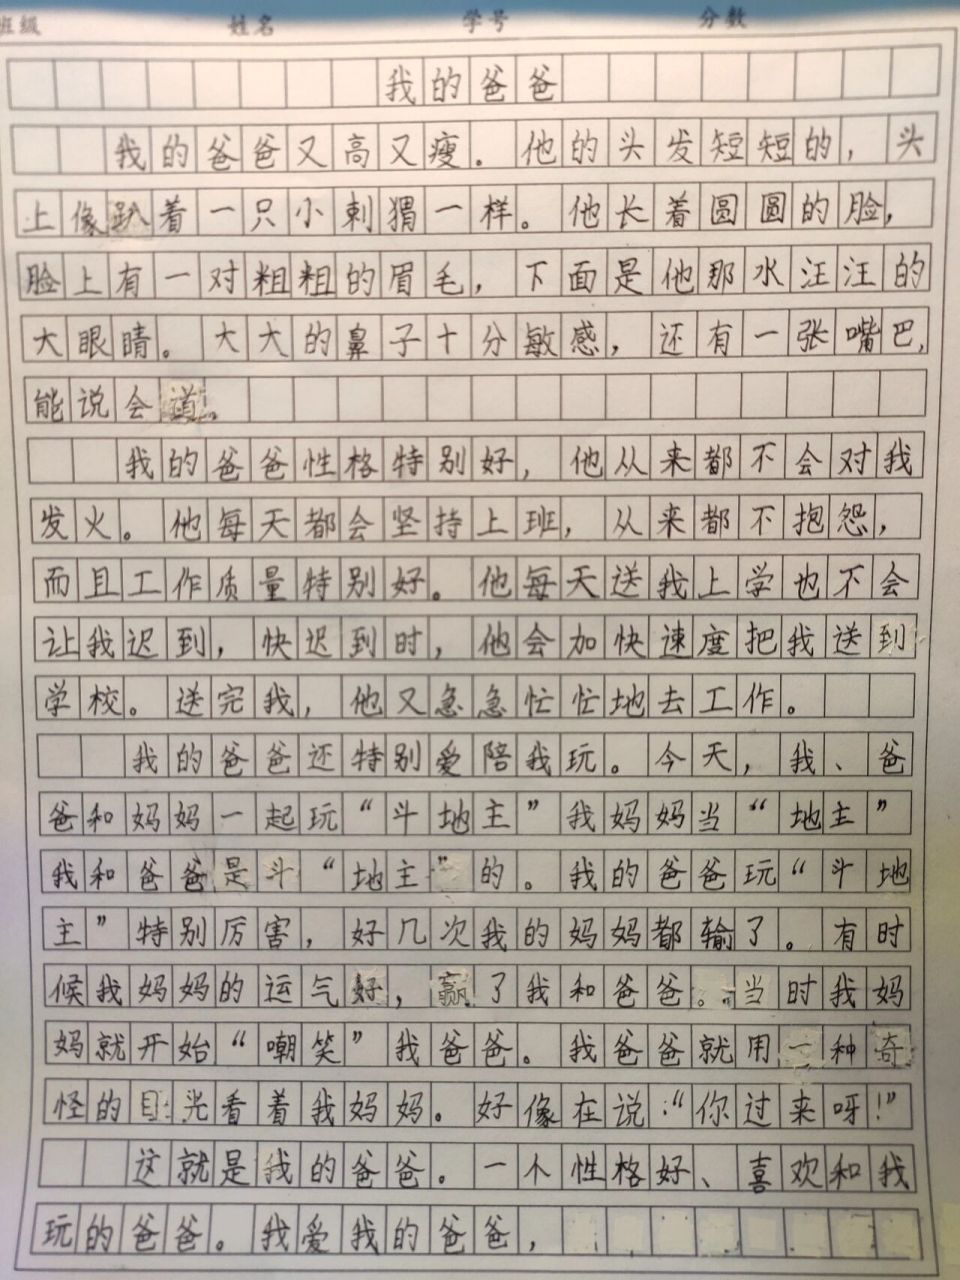 班级 姓名 学号 分数
我的爸爸
我的爸爸又高又瘦。他的头发短短的，头
上像趴着一只小刺猬一样。他长着圆圆的脸，
脸上有一对粗粗的眉毛，下面是他那水汪汪的
大眼睛。大大的鼻子十分敏感，还有一张嘴巴，
能说会道。
我的爸爸性格特别好，他从来都不会对我
发火。他每天都会坚持上班，从来都不抱怨，
而且工作质量特别好。他每天送我上学也不会
让我迟到，快迟到时，他会加快速度把我送到
学校。送完我，他又急急忙忙地去工作。
我的爸爸还特别爱陪我玩。今天，我、爸
爸和妈妈一起玩“斗地主”我妈妈当“地主”
我和爸爸是斗“地主”的。我的爸爸玩“斗地
主”特别厉害，好几次我的妈妈都输了。有时
候我妈妈的运气好，赢了我和爸爸。当时我妈
妈就开始“嘲笑”我爸爸。我爸爸就用一种奇
怪的目光看着我妈妈。好像在说：“你过来呀！”
这就是我的爸爸。一个性格好、喜欢和我
玩的爸爸。我爱我的爸爸，